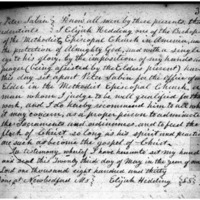 Peter Sabin } Know all men by these presents, that
Credentials } I Elijah Hedding one of the Bishops
of the Methodist Episcopal Church in America, under
the protection of Almighty God, and with a single
eye to his glory, by the imposition of my hands and
prayer (being assisted by the Elders present) have
this day set apart Peter Sabin for the office of an
Elder in the Methodist Episcopal Church, a
man whom I judge to be well qualified for that
work, and I do hereby recommend him to all whom
it may concern, as a proper person to administer
the Sacraments and ordinances, and to feed the
flock of Christ so long as his spirit and practice
are such as become the gospel of Christ.
In testimony whereof I have hereunto set my hand
and seal this twenty third day of May in the year of our
Lord one thousand eight hundred and thirty
one at New Bedford Ms. } Elijah Hedding {LS}